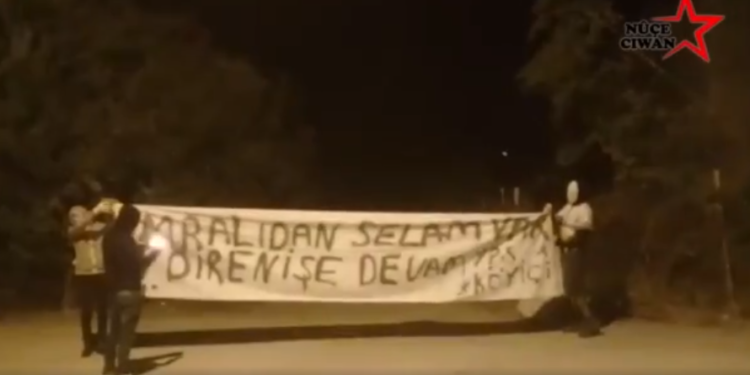 NÛÇE
CIWAN
İMRALIDAN SELAM VAR
DİRENİŞE DEVAM